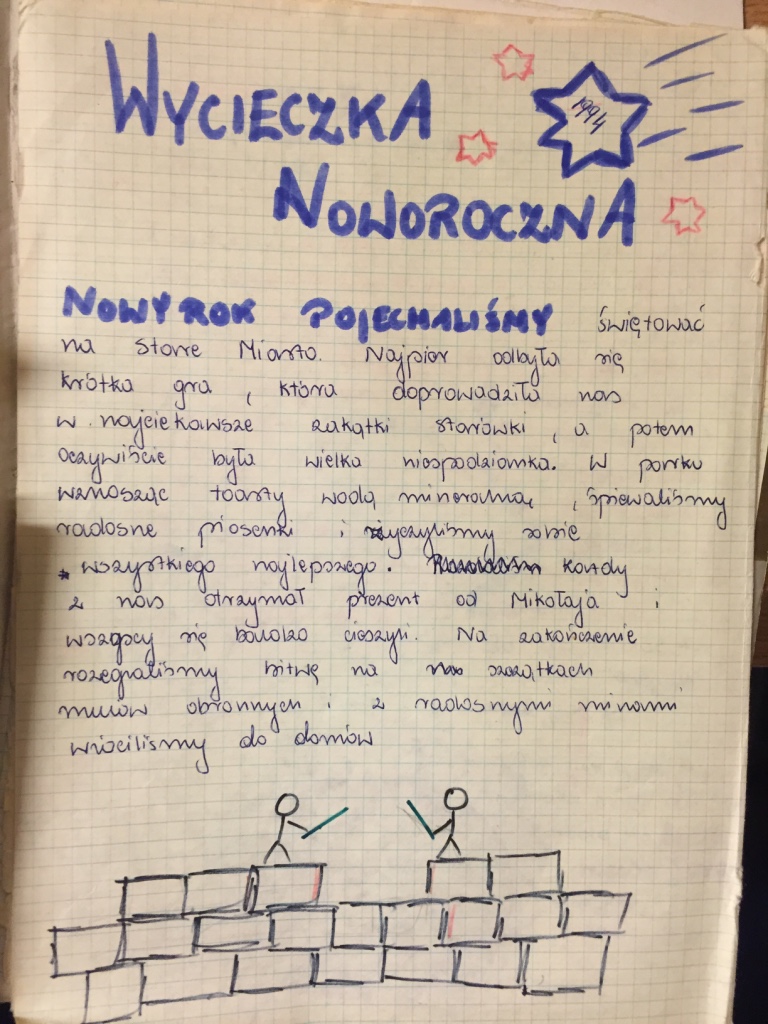 WYCIECZKA
1994
NOWOROCZNA
NOWY ROK POJECHALIŚMY świętować
na Stare Miasto. Najpier odbyła się
krótka gra, która doprowadziła nas
w najciekawsze zakątki starówki, a potem
oczywiście była wielka niespodzianka. W parku
wznosząc toasty wodą mineralną, śpiewaliśmy
radosne piosenki i życzyliśmy sobie
wszystkiego najlepszego. każdy
z nas otrzymał prezent od Mikołaja i
wszyscy się bardzo cieszyli. Na zakończenie
rozegraliśmy bitwę na szczątkach
murów obronnych i z radosnymi minami
wróciliśmy do domów